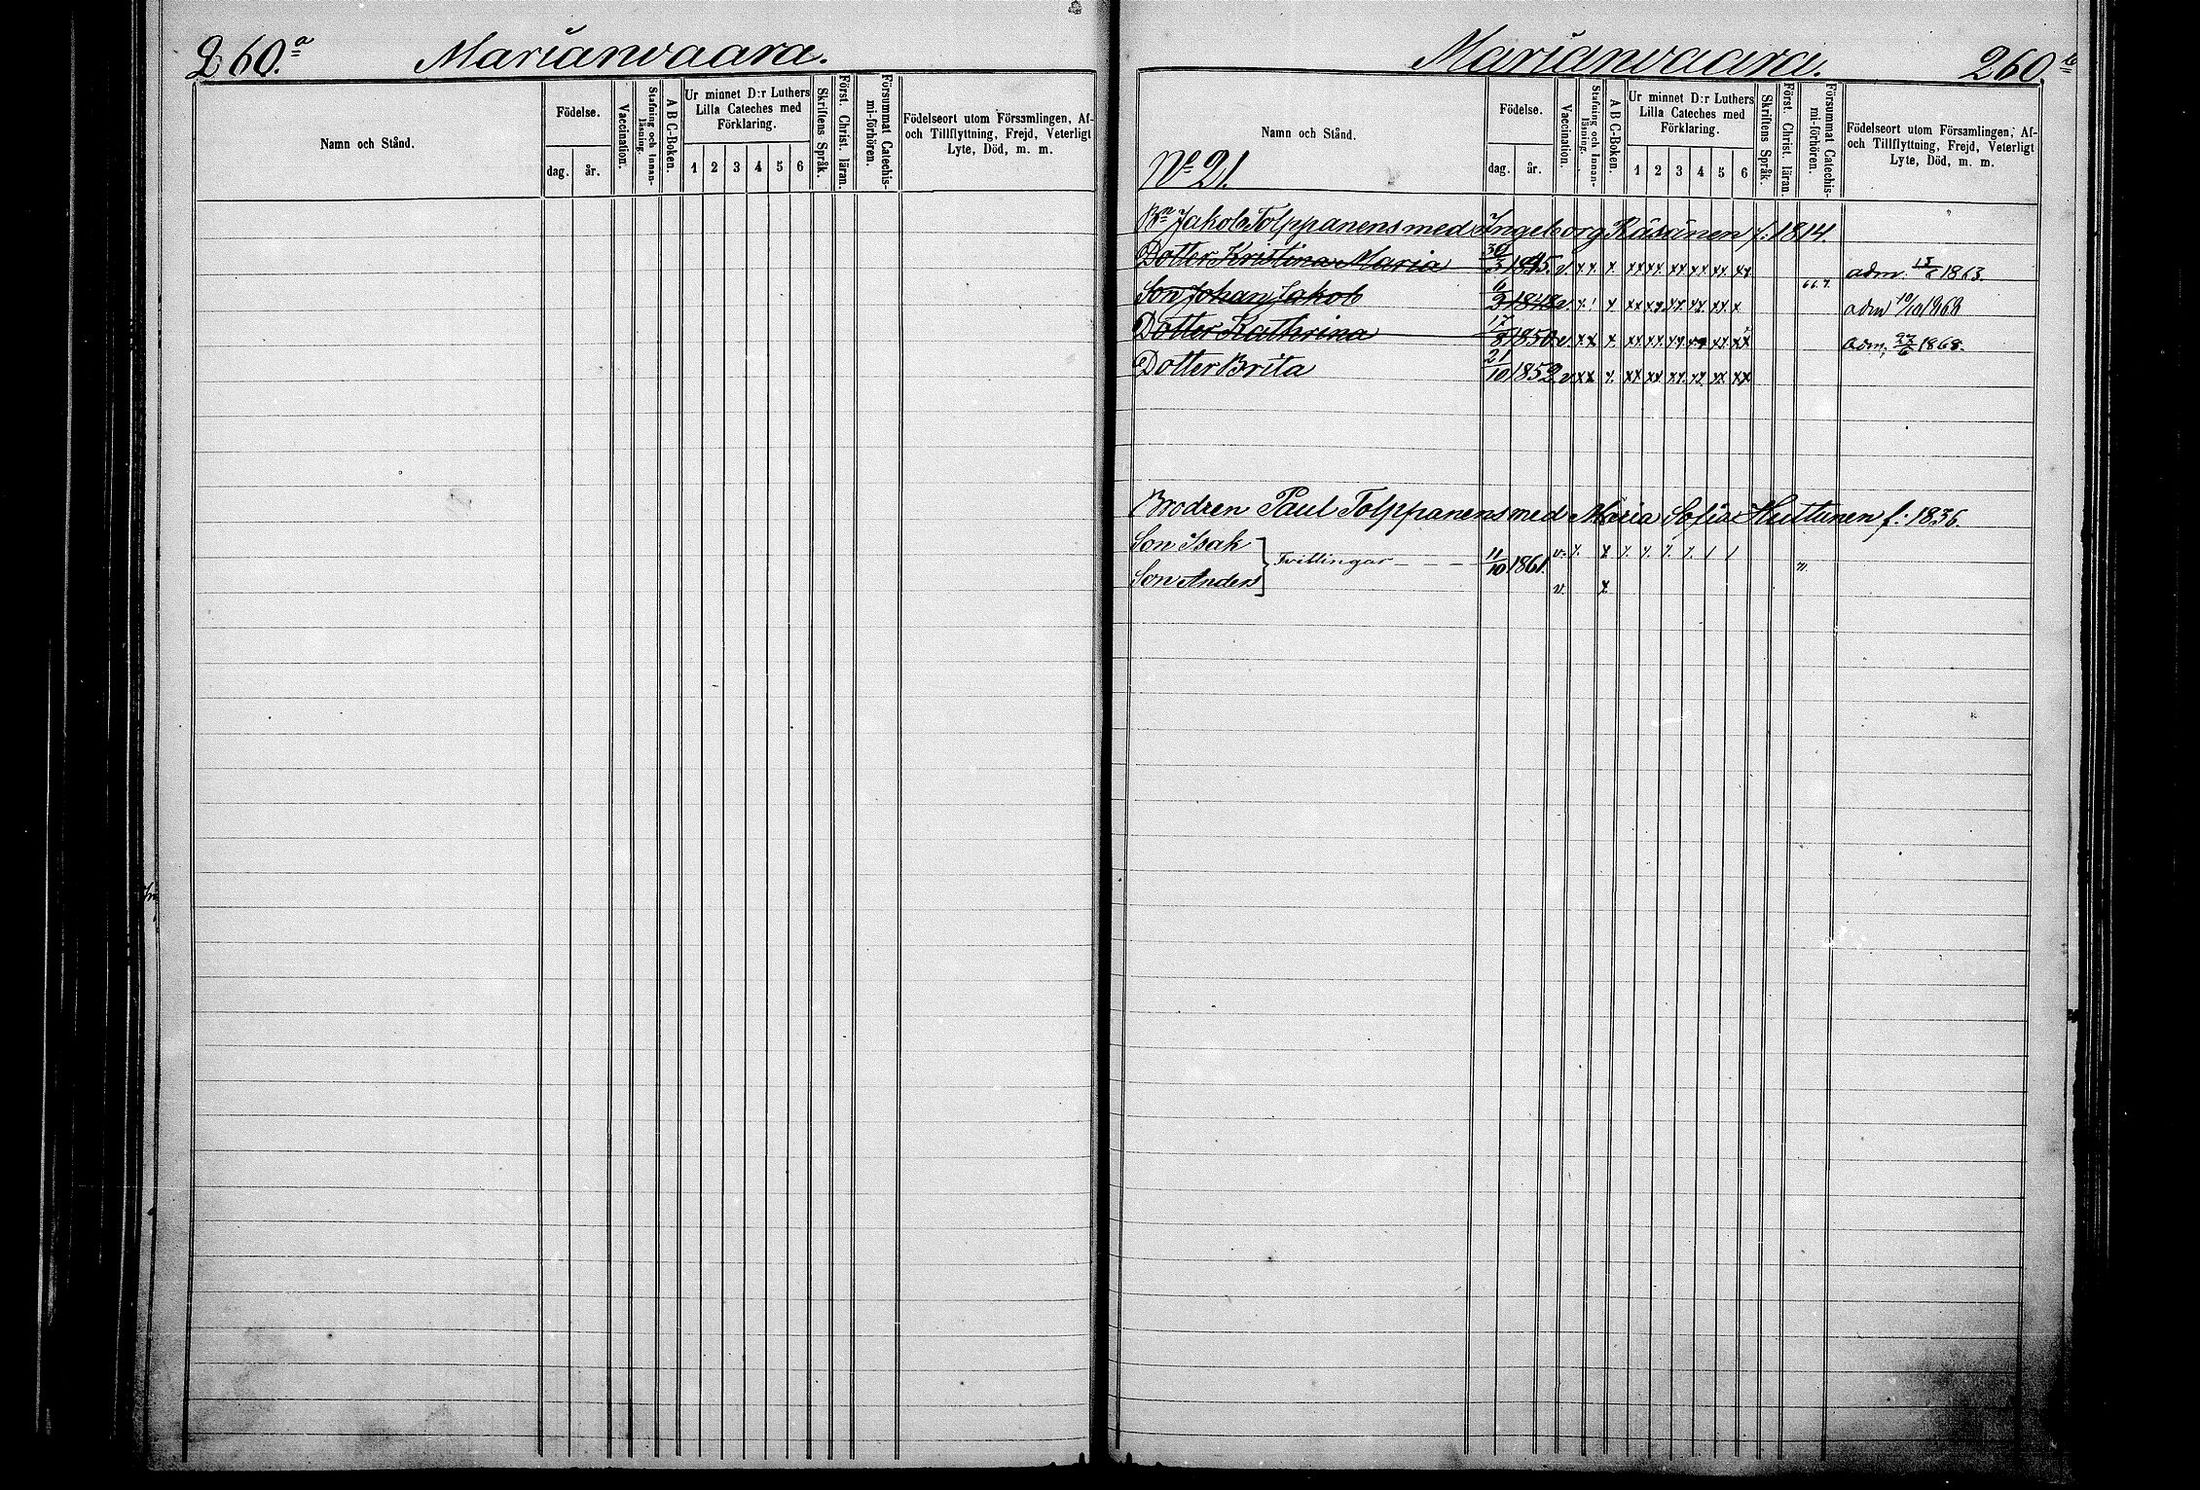 260.a Marianvaara.
Namn och Stånd.
Födelse.
dag. år.
Vaccination.
Stafning och Innanläsning.
A B C-Boken.
Ur minnet D:r Luthers Lilla Cateches med Förklaring.
1 2 3 4 5 6
Skriftens Språk.
Först. Christ. läran.
Försummat Catechismi-förhören.
Födelseort utom Församlingen, Af- och Tillflyttning, Frejd, Veterligt Lyte, Död, m. m.
Marianvaara. 260.b
Namn och Stånd.
No 21.
Födelse.
dag. år.
Vaccination.
Stafning och Innanläsning.
A B C-Boken.
Ur minnet D:r Luthers Lilla Cateches med Förklaring.
1 2 3 4 5 6
Skriftens Språk.
Först. Christ. läran.
Försummat Catechismi-förhören.
Födelseort utom Församlingen, Af- och Tillflyttning, Frejd, Veterligt Lyte, Död, m. m.
Bn Jakob Tolppanens med Ingeborg Räsänen f: 1814.
Dotter Kristina Maria 30/3 1845. v x x x xx xx xx xx xx xx adm. 1863
Son Johan Jakob 6/2 1848 v. 66.7. adm 10/10 1866
Dotter Kathrina 17/8 1850 v. xx x xx xx xx xx xx xx adm. 27/6 1868.
Dotter Brita 21/10 1852 v xx x xx xx xx xx xx xx
Brodren Paul Tolppanens med Maria Sofia Huttunen f: 1836.
Son Isak Tvillingar 11/10 1861. v. x. x x. x. x. x. / / "
Son Anders v. x